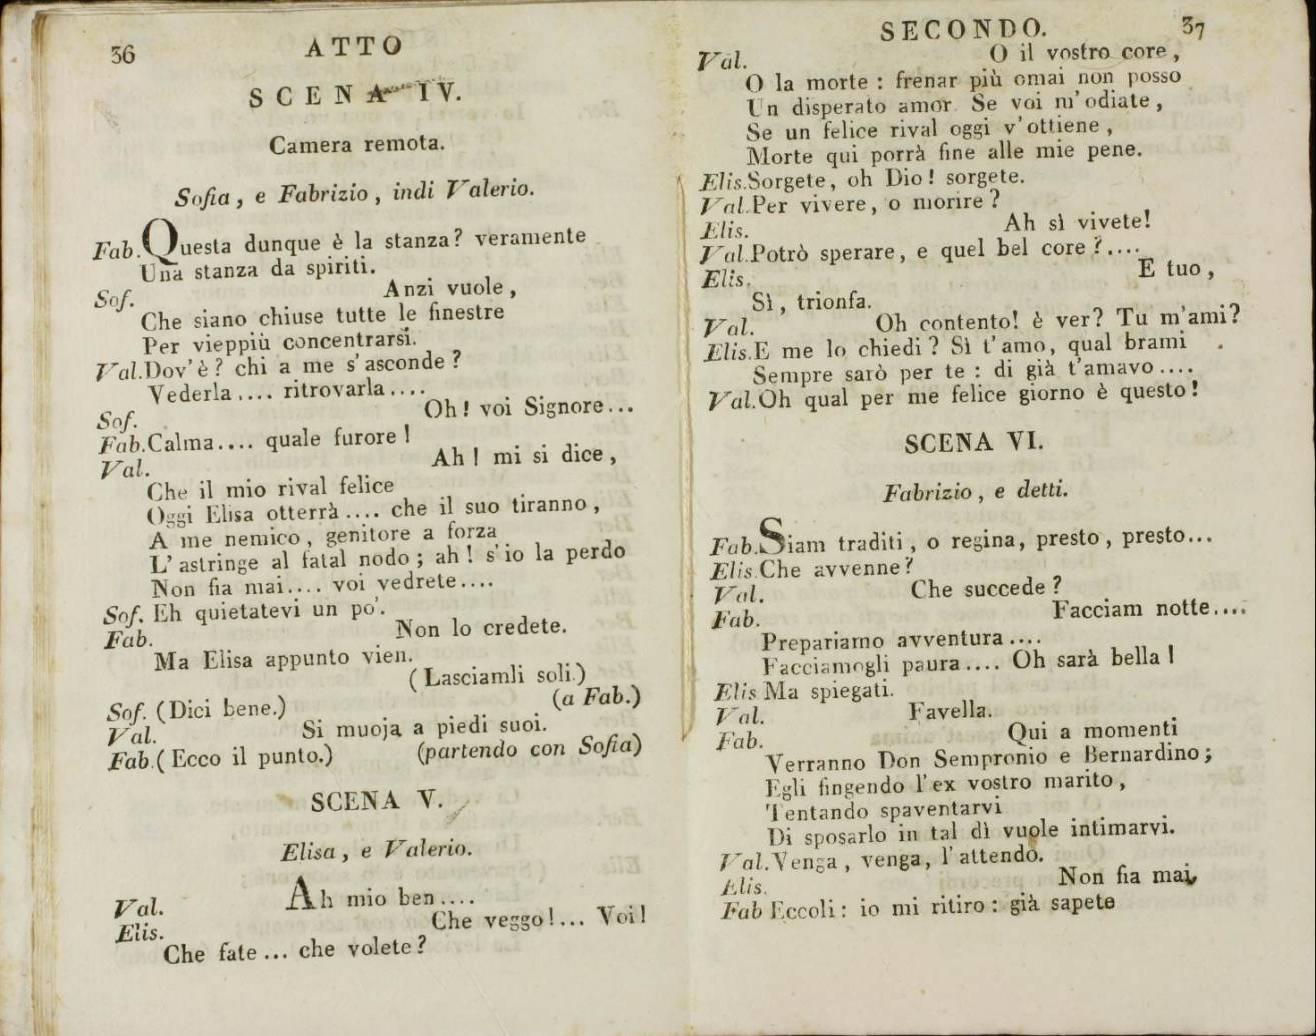 36
ATTO
SCENA IV.
Camera remota.
Sofia, e Fabrizio, indi Valerio.
Fab. Questa dunque è la stanza? veramente
Una stanza da spiriti.
Sof. Anzi vuole,
Che siano chiuse tutte le finestre
Per vieppiù concentrarsi.
Val. Dov'è? chi a me s'asconde?
Vederla.... ritrovarla....
Sof. Oh! voi Signore...
Fab. Calma.... quale furore!
Val. Ah! mi si dice,
Che il mio rival felice
Oggi Elisa otterrà.... che il suo tiranno,
A me nemico, genitore a forza
L'astringe al fatal nodo; ah! s'io la perdo
Non fia mai.... voi vedrete....
Sof. Eh quietatevi un po'.
Fab. Non lo credete.
Ma Elisa appunto vien.
(Lasciamli soli.)
(a Fab.)
Sof. (Dici bene.)
Val. Si muoja a piedi suoi.
Fab. (Ecco il punto.) (partendo con Sofia)
SCENA V.
Elisa, e Valerio.
Val. Ah mio ben....
Elis. Che veggo!... Voi!
Che fate... che volete?
SECONDO.
37
Val. O il vostro core,
O la morte: frenar più omai non posso
Un disperato amor Se voi m'odiate,
Se un felice rival oggi v'ottiene,
Morte qui porrà fine alle mie pene.
Elis. Sorgete, oh Dio! sorgete.
Val. Per vivere, o morire?
Elis. Ah sì vivete!
Val. Potrò sperare, e quel bel core?....
Elis. E tuo,
Sì, trionfa.
Val. Oh contento! è ver? Tu m'ami?
Elis. E me lo chiedi? Sì t'amo, qual brami
Sempre sarò per te: di già t'amavo....
Val. Oh qual per me felice giorno è questo!
SCENA VI.
Fabrizio, e detti.
Fab. Siam traditi, o regina, presto, presto...
Elis. Che avvenne?
Val. Che succede?
Fab. Facciam notte....
Prepariamo avventura....
Facciamogli paura.... Oh sarà bella!
Elis Ma spiegati.
Val. Favella.
Fab. Qui a momenti
Verranno Don Sempronio e Bernardino;
Egli fingendo l'ex vostro marito,
Tentando spaventarvi
Di sposarlo in tal dì vuole intimarvi.
Val. Venga, venga, l'attendo.
Elis. Non fia mai.
Fab Eccoli: io mi ritiro: già sapete